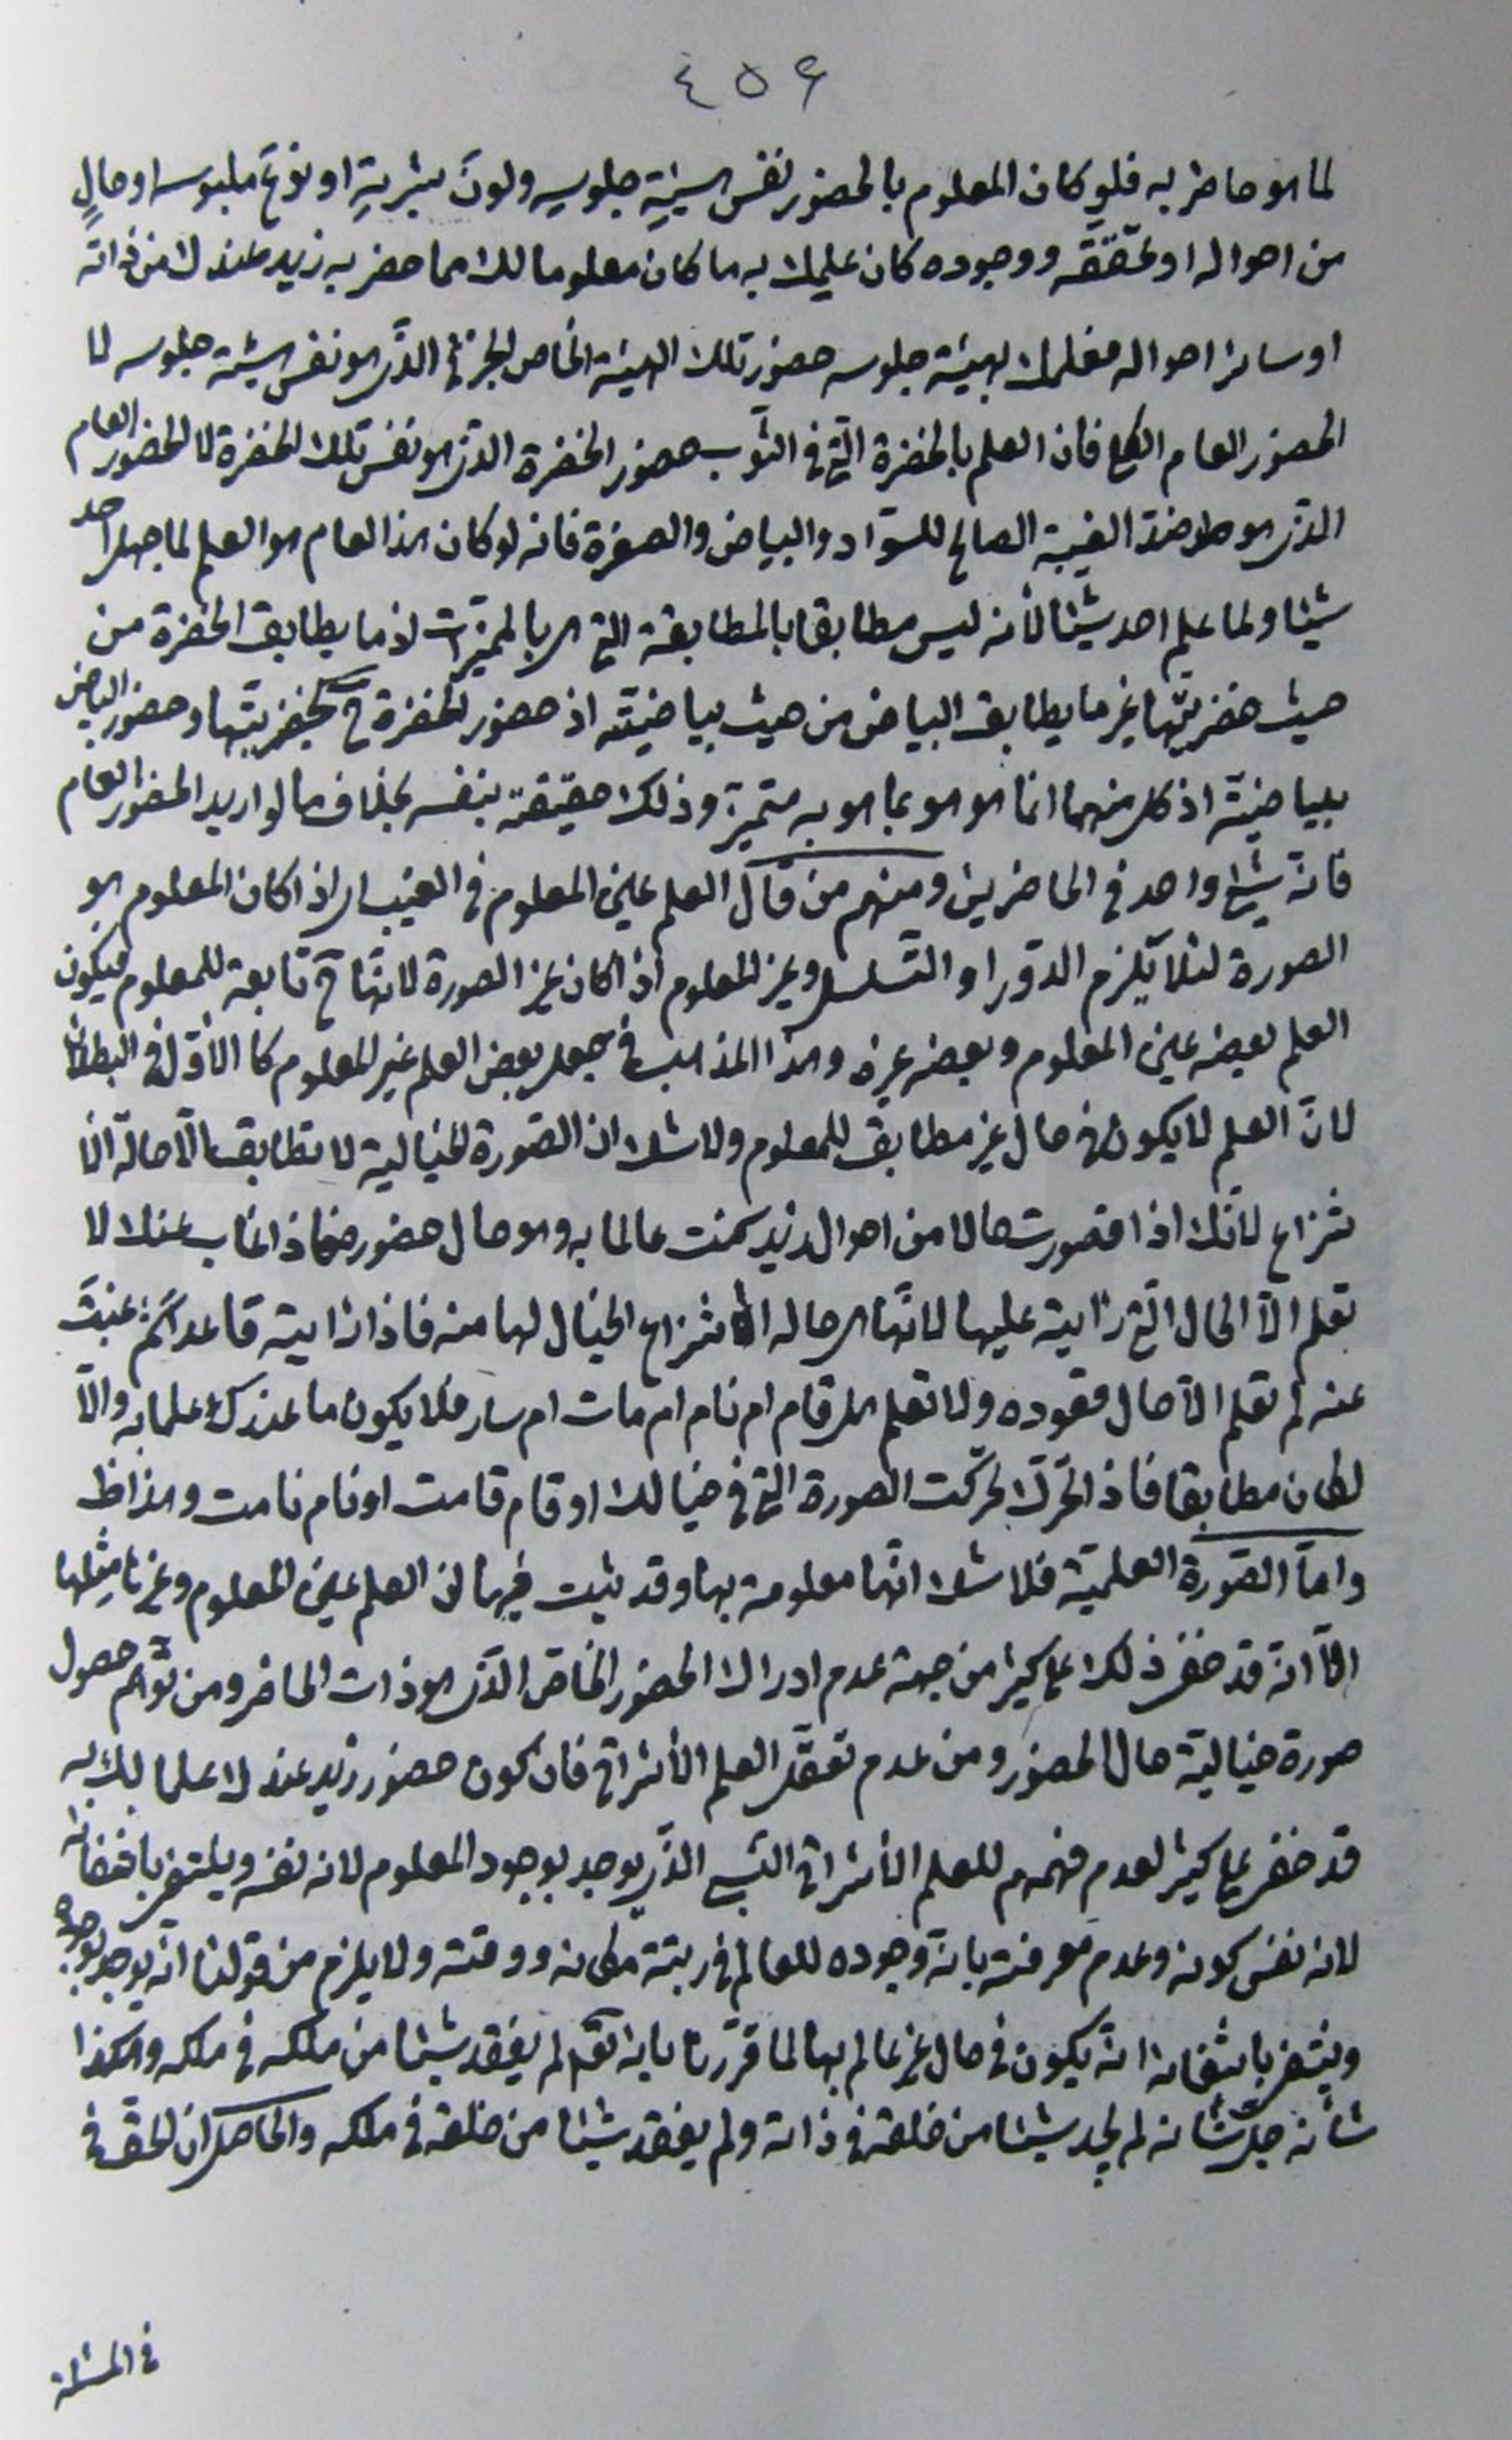 ٤٥٤
لما هو حاضر به فلو كان المعلوم بالحضور نفس هيئةِ جلوسِه ولونَ بشريةِ او نوعَ ملبوسه او حالٍ
من احواله او تحقّقه ووجوده كان علمك به ما كان معلوما لك مما حضر به زيد عندك من ذاته
او سائر احواله فعلمك بهيئة جلوسه حضور تلك الهيئة الخاص الجزئى الذى هو نفس هيئة جلوسه لا
الحضور العام الكلى فان العلم بالخضرة التى فى الثوب حضور الخضرة الذى هو نفس تلك الخضرة لا الحضور العام
الذى هو ضدّ الغيبة الصالح للسّواد والبياض والصفرة فانه لو كان هذا العام هو العلم لما جهل احد
شيئا ولما علم احد شيئا لأنه ليس مطابقا بالمطابقة التى هى بالمميّزات اذ ما يطابق الخضرة من
حيث خضريّتها غير ما يطابق البياض من حيث بياضيّته اذ حضور الخضرة ح بخضريتها وحضور البياض
ببياضيّة اذ كل منهما انما هو هو بما هو به متميّز وذلك حقيقته بنفسه بخلاف ما لو اريد الحضور العام
فانّه شئ واحد فى الحاضرين ومنهم من قال العلم عين المعلوم فى الغيب اى اذا كان المعلوم هو
الصورة لئلا يلزم الدّور او التّسلسل وغير المعلوم اذا كان غير الصورة لانّها ح تابعة للمعلوم فيكون
العلم بعضه عين المعلوم وبعضه غيره وهذا المذهب فى جعل بعض العلم غير المعلوم كالأوّل فى البطلان
لانّ العلم لا يكون فى حال غير مطابق للمعلوم ولا شك ان الصّورة الخيالية لا تطابق الّا حالة الان
تزاع لانّك اذا تصورت حالا من احوال زيد كنت عالما به وهو حال حضوره فاذا غاب عنك لا
تعلم الّا الحال الّتى رأيته عليها لانّها هى حاله انتزاع الخيال لها منه فاذا رايته قاعدا ثمّ غبتَ
عنه لم تعلم الّا حال قعوده ولا تعلم هل قام ام نام ام مات ام سار فلا يكون ما عندك علما به والّا
لكان مطابقا فاذا تحرّك تحرّكت الصورة التى فى خيالك او قام قامت او نام نامت وهذا ظ
وامّا الصّورة العلميّة فلا شك انّها معلومة بها وقد ثبت فيها ان العلم عين المعلوم وغيرها مثلها
الّا انّه قد خفى ذلك على كثير من جهة عدم ادراك الحضور الخاصّ الّذى هو ذات الحاضر ومن توهّم حصول
صورة خيالية حال الحضور ومن عدم تعقّل العلم الأشراقى فان كون حضور زيد عندك علما لك به
قد خفى على كثير لعدم فهمهم للعلم الأشراقى النّسبى الّذى يوجد بوجود المعلوم لانه نفسه وينتفى بانتفائه
لانه نفس كونه وعدم معرفته بانّه وجوده للعالم فى رتبة مكانه ووقته ولا يلزم من قولنا انّه يوجد بوجوده
وينتفى بانتفائه انّه يكون فى حال غير عالم بها لما قرّرنا بانه تعالى لم يفقد شيئا من ملكه فى ملكه وهكذا
شأنه جلّ شأنه لم يجد شيئا من خلقه فى ذاته ولم يفقد شيئا من خلقه فى ملكه والحاصل ان الحقّ فى
فى المسئلة